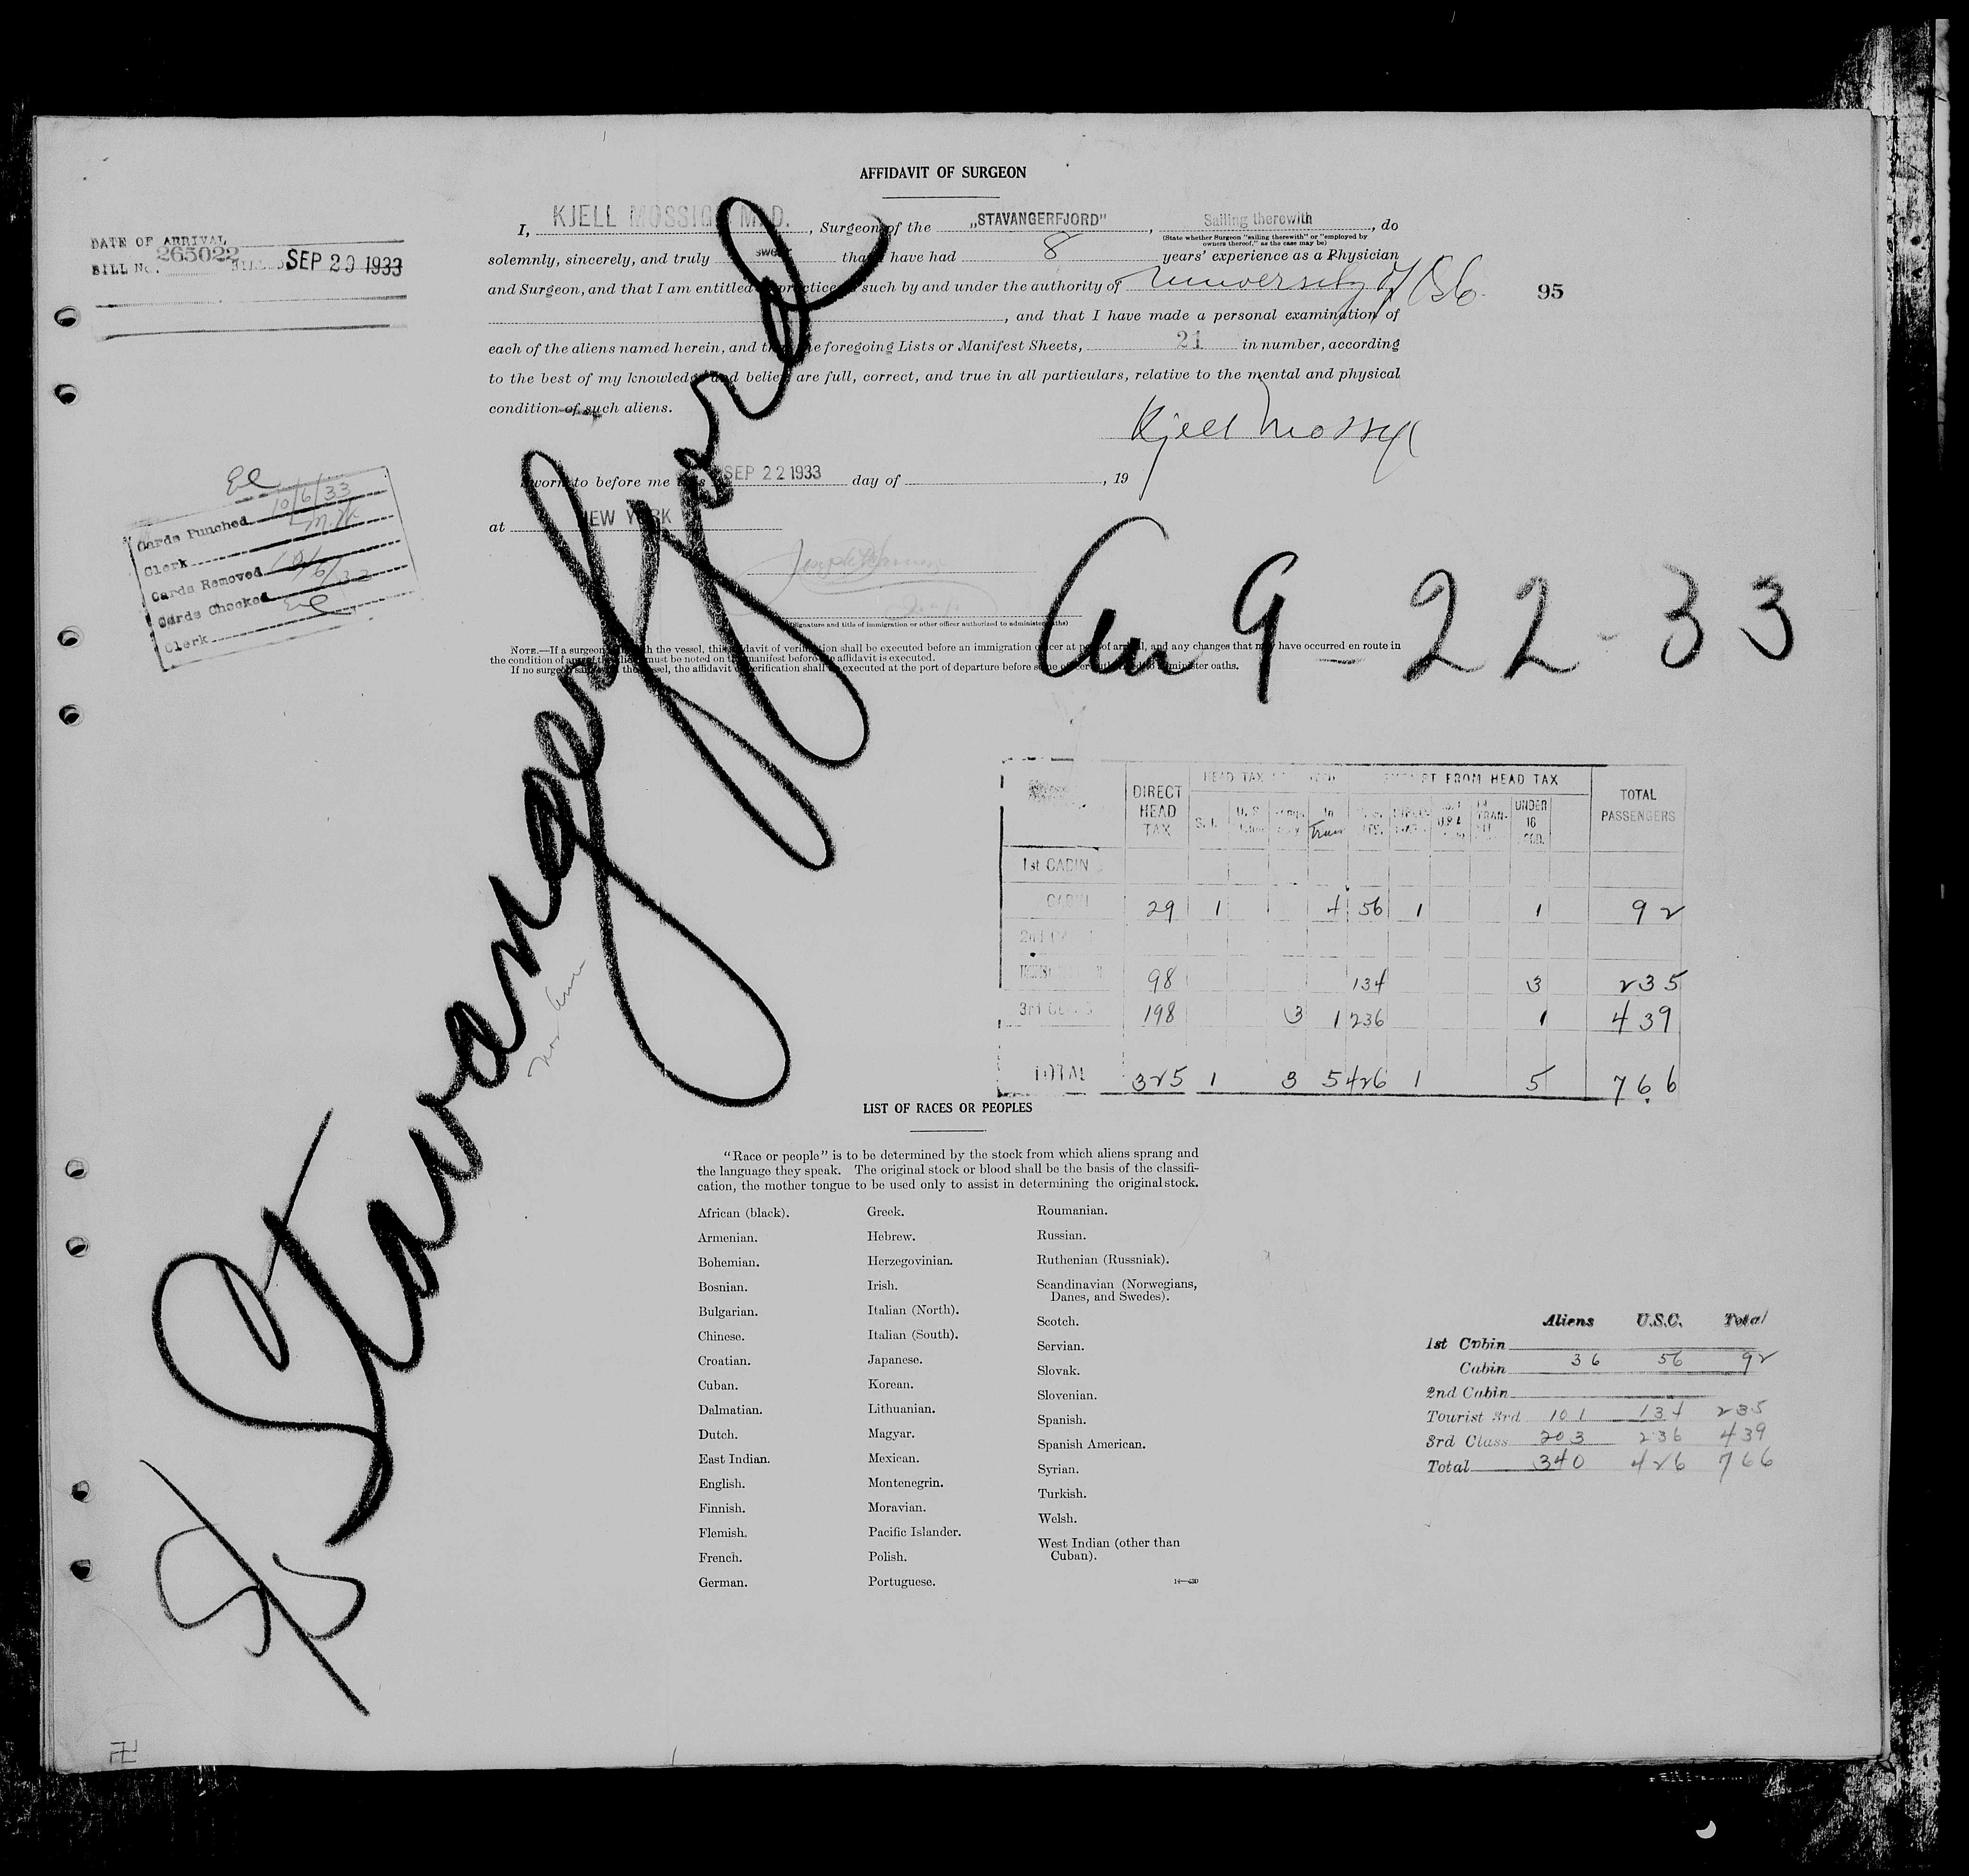 AFFIDAVIT OF SURGEON
I, KJELL MOSSIGE M.D., Surgeon of the „STAVANGERFJORD", Sailing therewith, do
(State whether Surgeon "sailing therewith" or "employed by
owners thereof," as the case may be)
solemnly, sincerely, and truly swear that I have had 8 years' experience as a Physician
and Surgeon, and that I am entitled to practice as such by and under the authority of University of Oslo
, and that I have made a personal examination of
each of the aliens named herein, and that the foregoing Lists or Manifest Sheets, 21 in number, according
to the best of my knowledge and belief, are full, correct, and true in all particulars, relative to the mental and physical
condition of such aliens.
Kjell Mossige
Sworn to before me this SEP 22 1933 day of , 19
at NEW YORK
(Signature and title of immigration or other officer authorized to administer oaths)
NOTE.—If a surgeon sails with the vessel, this affidavit of verification shall be executed before an immigration officer at port of arrival, and any changes that may have occurred en route in
the condition of any of the aliens must be noted on the manifest before the affidavit is executed.
If no surgeon sails with the vessel, the affidavit of verification shall be executed at the port of departure before some officer authorized to administer oaths.
DATE OF ARRIVAL
BILL No. 265022 BILLED SEP 29 1933
95
El
Cards Punched 10/6/33
Clerk M.K.
Cards Removed 10/6/33
Cards Checked
Clerk El
Stavangerfjord
Arr 9-22-33
DIRECT HEAD TAX
EXEMPT FROM HEAD TAX
TOTAL PASSENGERS
S.I.
In Trans
UNDER 16
1st CABIN
CABIN 29 1 4 56 1 1 92
2nd CABIN
TOURIST 98 134 3 235
3rd CLASS 198 3 1 236 1 439
TOTAL 325 1 3 5 426 1 5 766
LIST OF RACES OR PEOPLES
"Race or people" is to be determined by the stock from which aliens sprang and
the language they speak. The original stock or blood shall be the basis of the classifi-
cation, the mother tongue to be used only to assist in determining the original stock.
African (black).
Armenian.
Bohemian.
Bosnian.
Bulgarian.
Chinese.
Croatian.
Cuban.
Dalmatian.
Dutch.
East Indian.
English.
Finnish.
Flemish.
French.
German.
Greek.
Hebrew.
Herzegovinian.
Irish.
Italian (North).
Italian (South).
Japanese.
Korean.
Lithuanian.
Magyar.
Mexican.
Montenegrin.
Moravian.
Pacific Islander.
Polish.
Portuguese.
Roumanian.
Russian.
Ruthenian (Russniak).
Scandinavian (Norwegians,
Danes, and Swedes).
Scotch.
Servian.
Slovak.
Slovenian.
Spanish.
Spanish American.
Syrian.
Turkish.
Welsh.
West Indian (other than
Cuban).
Aliens U.S.C. Total
1st Cabin
Cabin 36 56 92
2nd Cabin
Tourist 3rd 101 134 235
3rd Class 203 236 439
Total 340 426 766